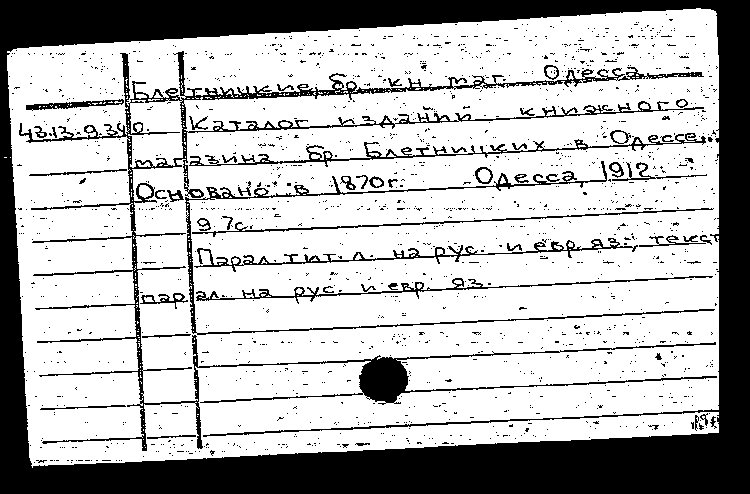 Блетницкие, бр. кн. маг. Одесса.
43.13.9.340. Каталог изданий книжного
магазина бр. Блетницких в Одессе...
Основано в 1870г. Одесса, 1912.
9,7с.
Парал. тит. л. на рус. и евр. яз.; текст
парал. на рус. и евр. яз.